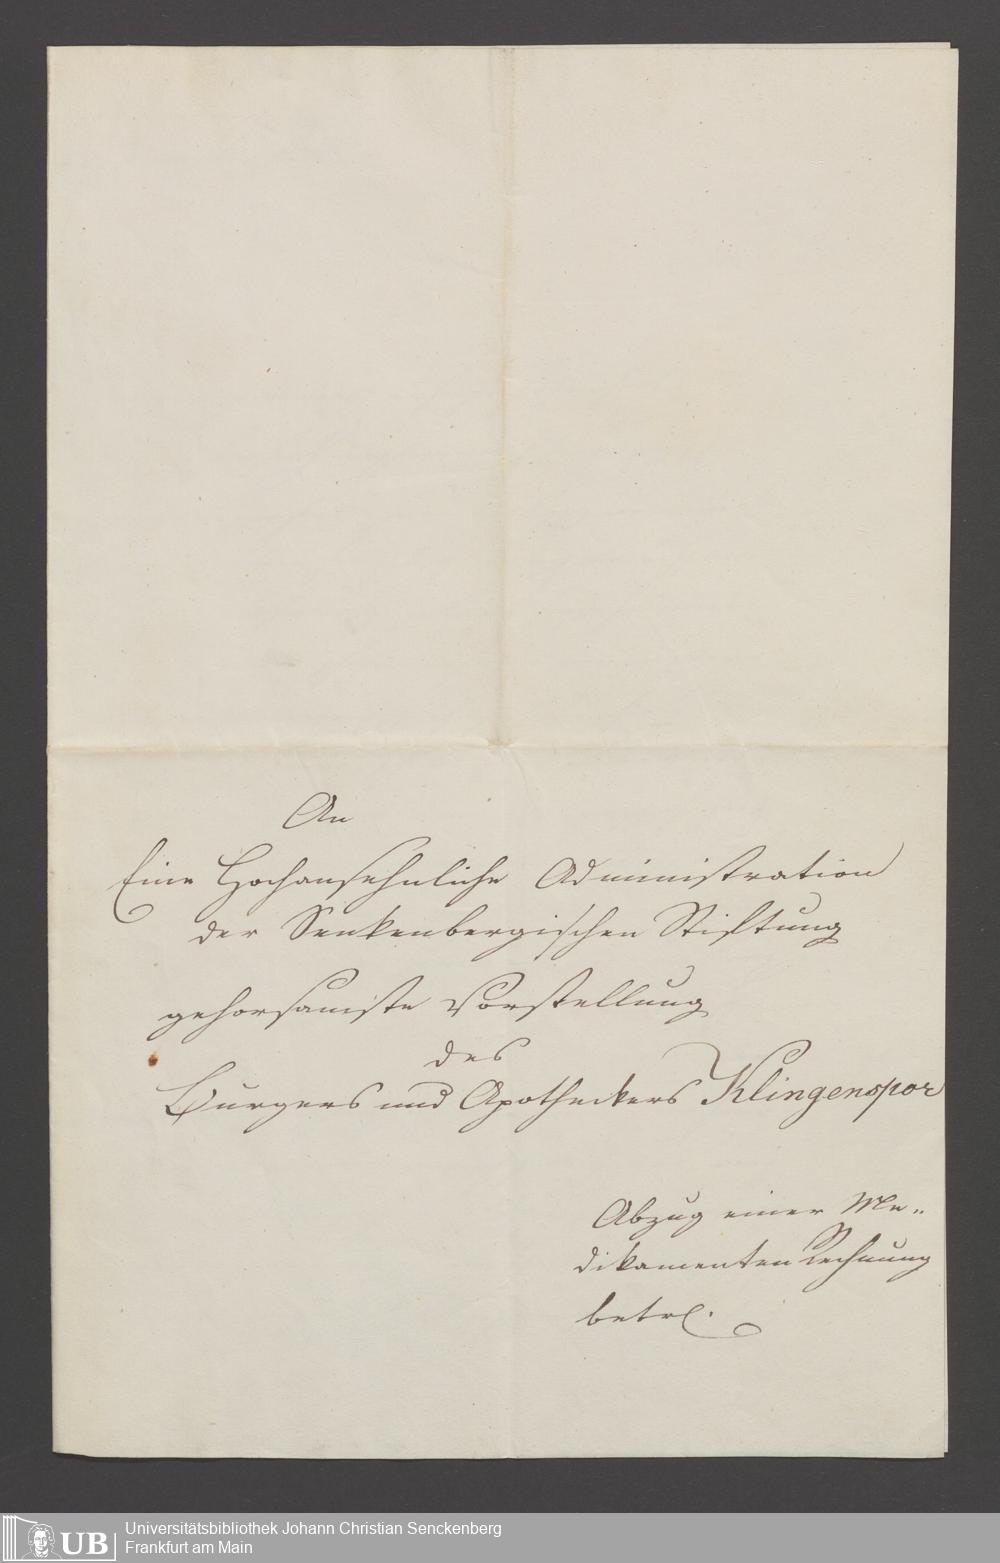 An
Eine Hochansehnliche Administration
der Senkenbergischen Stiftung
gehorsamste Vorstellung
des
Burgers und Apotheckers Klingenspor
Abzug einer Me„
dikamenten Rechnung
betrl.
UB Universitätsbibliothek Johann Christian Senckenberg
Frankfurt am Main